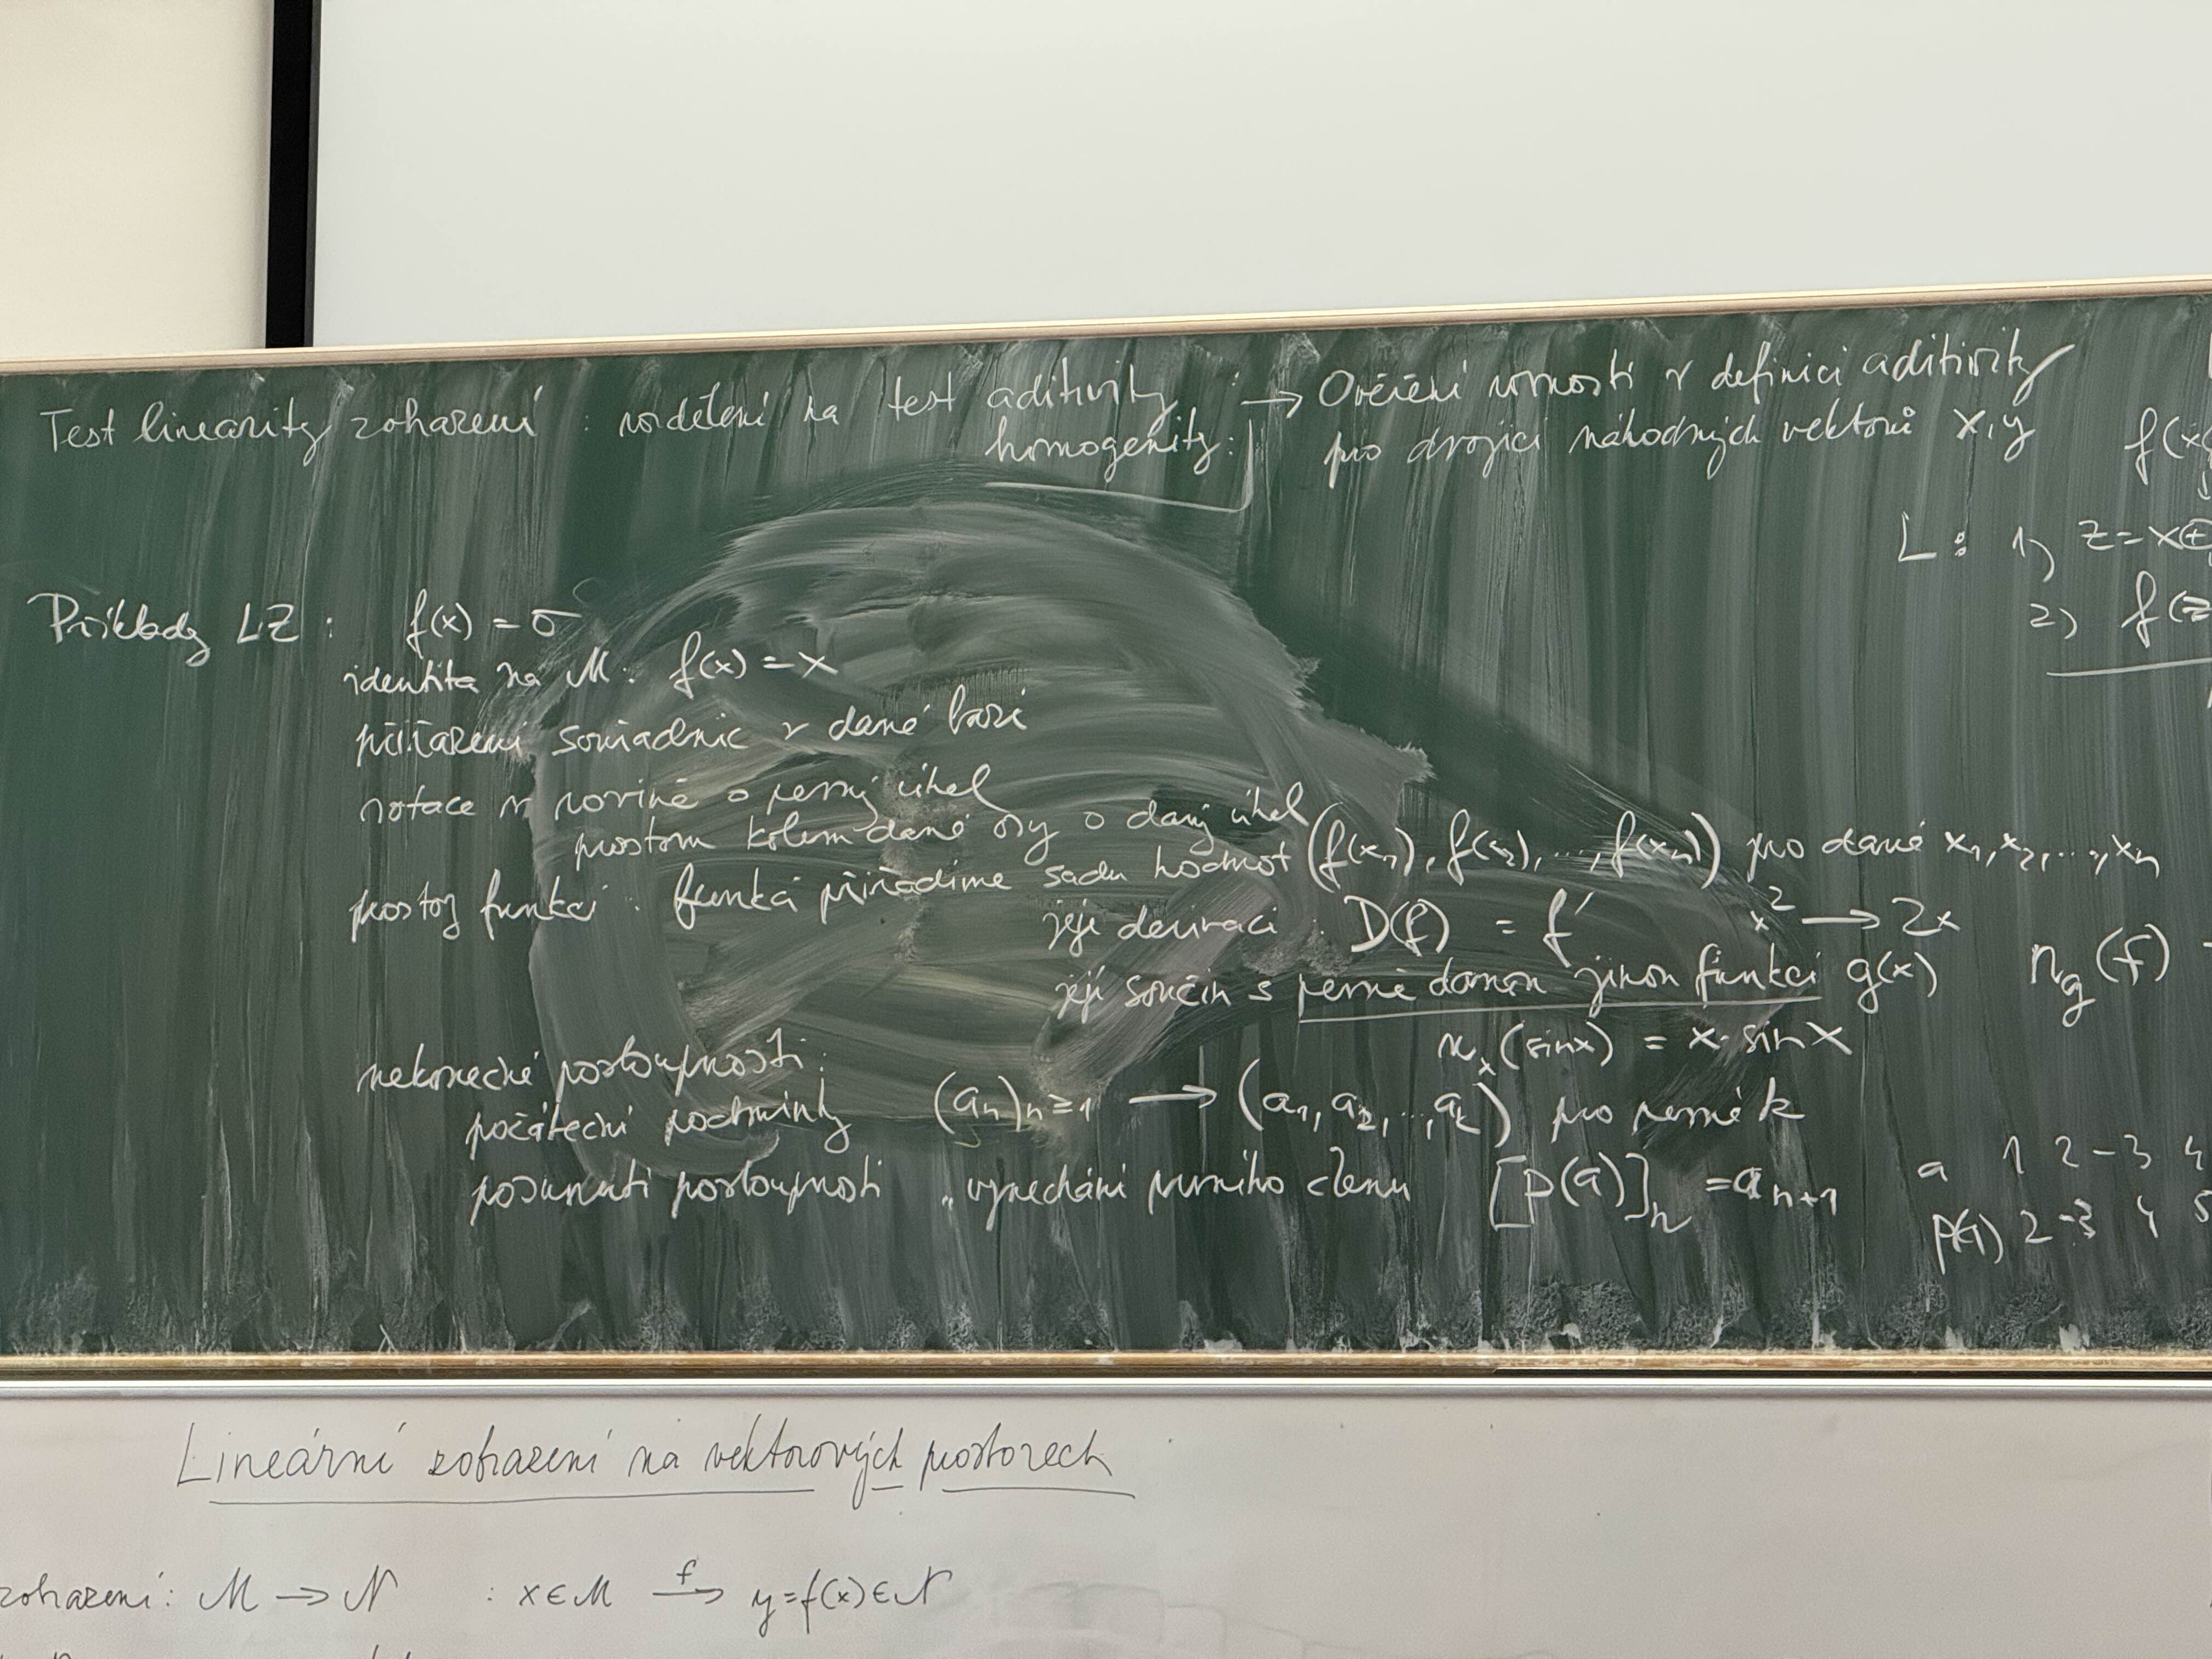 Test linearity zobrazení : rozdělení na test aditivity : → Ověření rovnosti v definici aditivity
homogenity : pro dvojici náhodných vektorů x, y
f(x
L : 1) z = x ⊕
2) f(z
Příklady LZ : f(x) = σ
identita na M : f(x) = x
přiřazení souřadnic v dané bázi
rotace v rovině o pevný úhel
prostoru kolem dané osy o daný úhel
prostor funkcí : funkci přiřadíme sadu hodnot (f(x₁), f(x₂), ..., f(xₙ)) pro dané x₁, x₂, ..., xₙ
její derivaci : D(f) = f′ x² → 2x
její součin s pevně danou jinou funkcí g(x) n_g(f)
n_x(sin x) = x · sin x
nekonečné posloupnosti :
počáteční podmínky (aₙ)ₙ≥₁ → (a₁, a₂, .., aₖ) pro pevné k
posunutí posloupnosti „vynechání prvního členu [P(a)]ₙ = aₙ₊₁
a 1 2 -3 4
P(a) 2 -3 4 5
Lineární zobrazení na vektorových prostorech
zobrazení : M → N : x ∈ M →f y = f(x) ∈ N